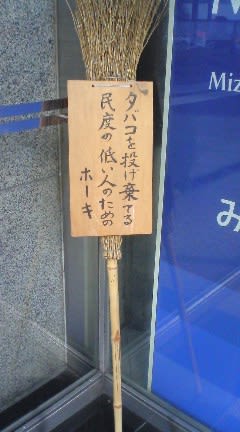 タバコを投げ棄てる
民度の低い人のための
ホーキ
Miz
み